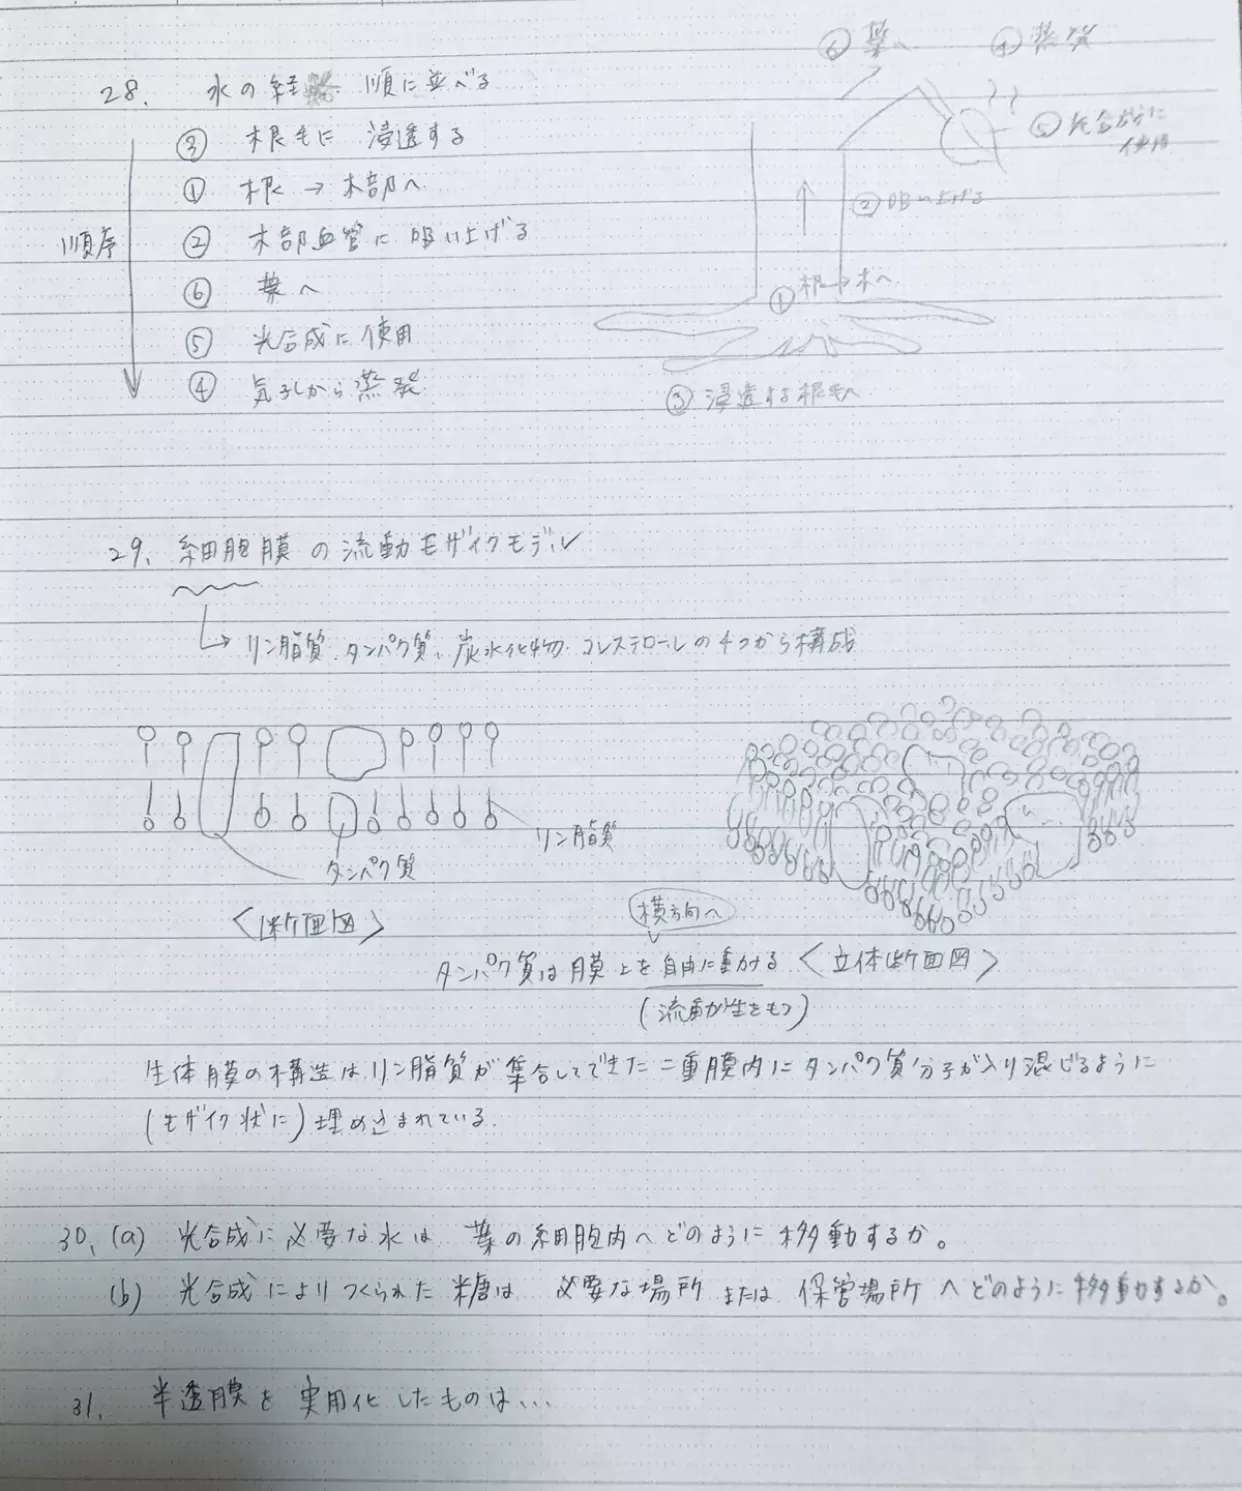 28. 水の経 順に並べる
③ 根毛に 浸透する
① 根 → 木部へ
② 木部血管に 吸い上げる
⑥ 葉へ
⑤ 光合成に 使用
④ 気孔から蒸発
順序
⑥ 葉へ
④ 蒸発
⑤ 光合成に
使用
② 吸い上げる
① 根→木へ
③ 浸透する 根毛へ
29. 細胞膜 の 流動モザイクモデル
リン脂質、タンパク質、炭水化物、コレステロールの4つから構成
リン脂質
タンパク質
<断面図>
横方向へ
タンパク質は膜上を自由に動ける
(流動性をもつ)
<立体断面図>
生体膜の構造は、リン脂質が集合してできた二重膜内にタンパク質分子が入り混じるように
(モザイク状に)埋め込まれている。
30. (a) 光合成に必要な水は 葉の細胞内へどのように移動するか。
(b) 光合成によりつくられた糖は 必要な場所 または 保管場所 へどのように移動するか。
31. 半透膜を実用化したものは...